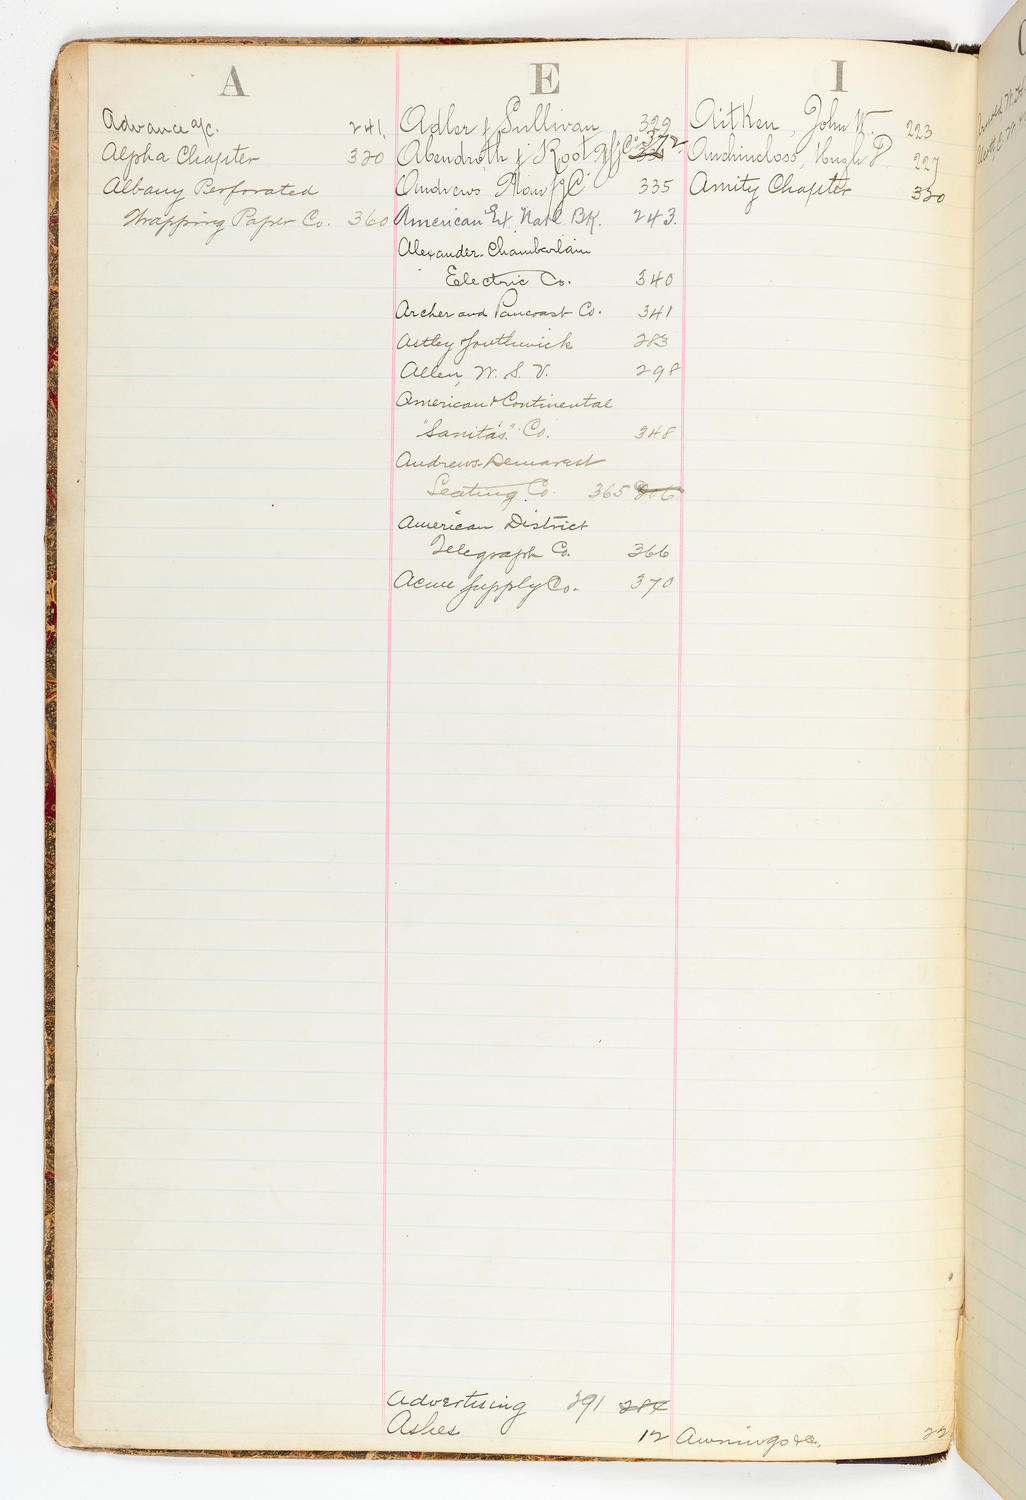 A
Advance a/c. 241.
Alpha Chapter 320
Albany Perforated
Wrapping Paper Co. 360
E
Adler & Sullivan 329
Abendroth & Root Mfg Co. 372
Andrews, Mfg Co 335
American Ex. Nat'l. Bk. 243.
Alexander-Chamberlain
Electric Co. 340
Archer and Pancoast Co. 341
Astley Southwick 283
Allen, W. S. V. 298
American & Continental
"Sanitas." Co. 348
Andrews-Demarest
Seating Co. 365 206
American District
Telegraph Co. 366
Acme Supply Co. 370
Advertising 291 284
Ashes 12
I
Aitken, John W. 223
Auchincloss, Hugh D. 227
Amity Chapter 320
Awnings &c. 22